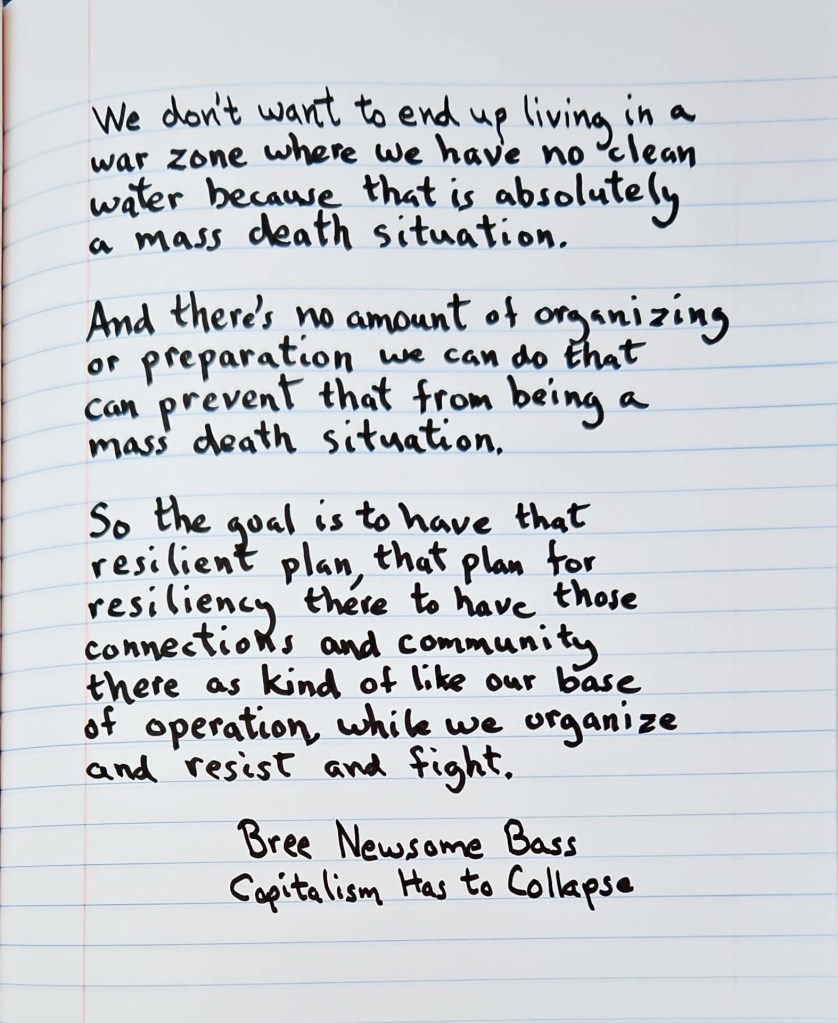 We don't want to end up living in a
war zone where we have no clean
water because that is absolutely
a mass death situation.
And there's no amount of organizing
or preparation we can do that
can prevent that from being a
mass death situation.
So the goal is to have that
resilient plan, that plan for
resiliency there to have those
connections and community
there as kind of like our base
of operation, while we organize
and resist and fight.
Bree Newsome Bass
Capitalism Has to Collapse